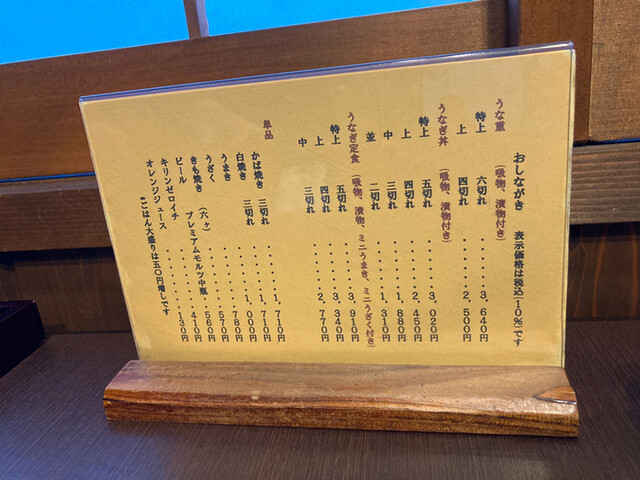 おしながき 表示価格は税込(10%)です
うな重 (吸物、漬物付き)
特上 六切れ・・・・・3,640円
上 四切れ・・・・・2,500円
うなぎ丼 (吸物、漬物付き)
特上 五切れ・・・・・3,020円
上 四切れ・・・・・2,450円
中 三切れ・・・・・1,880円
並 二切れ・・・・・1,310円
うなぎ定食 (吸物、漬物、ミニうまき、ミニうざく付き)
特上 五切れ・・・・・3,910円
上 四切れ・・・・・3,340円
中 三切れ・・・・・2,770円
単品
かば焼き 三切れ・・・・・1,710円
白焼き 三切れ・・・・・1,710円
うまき・・・・・1,000円
うざく・・・・・780円
きも焼き (六ヶ)・・・・・570円
ビール プレミアムモルツ中瓶・560円
キリンゼロイチ・・・・・410円
オレンジジュース・・・・・130円
ごはん大盛りは五〇円増しです